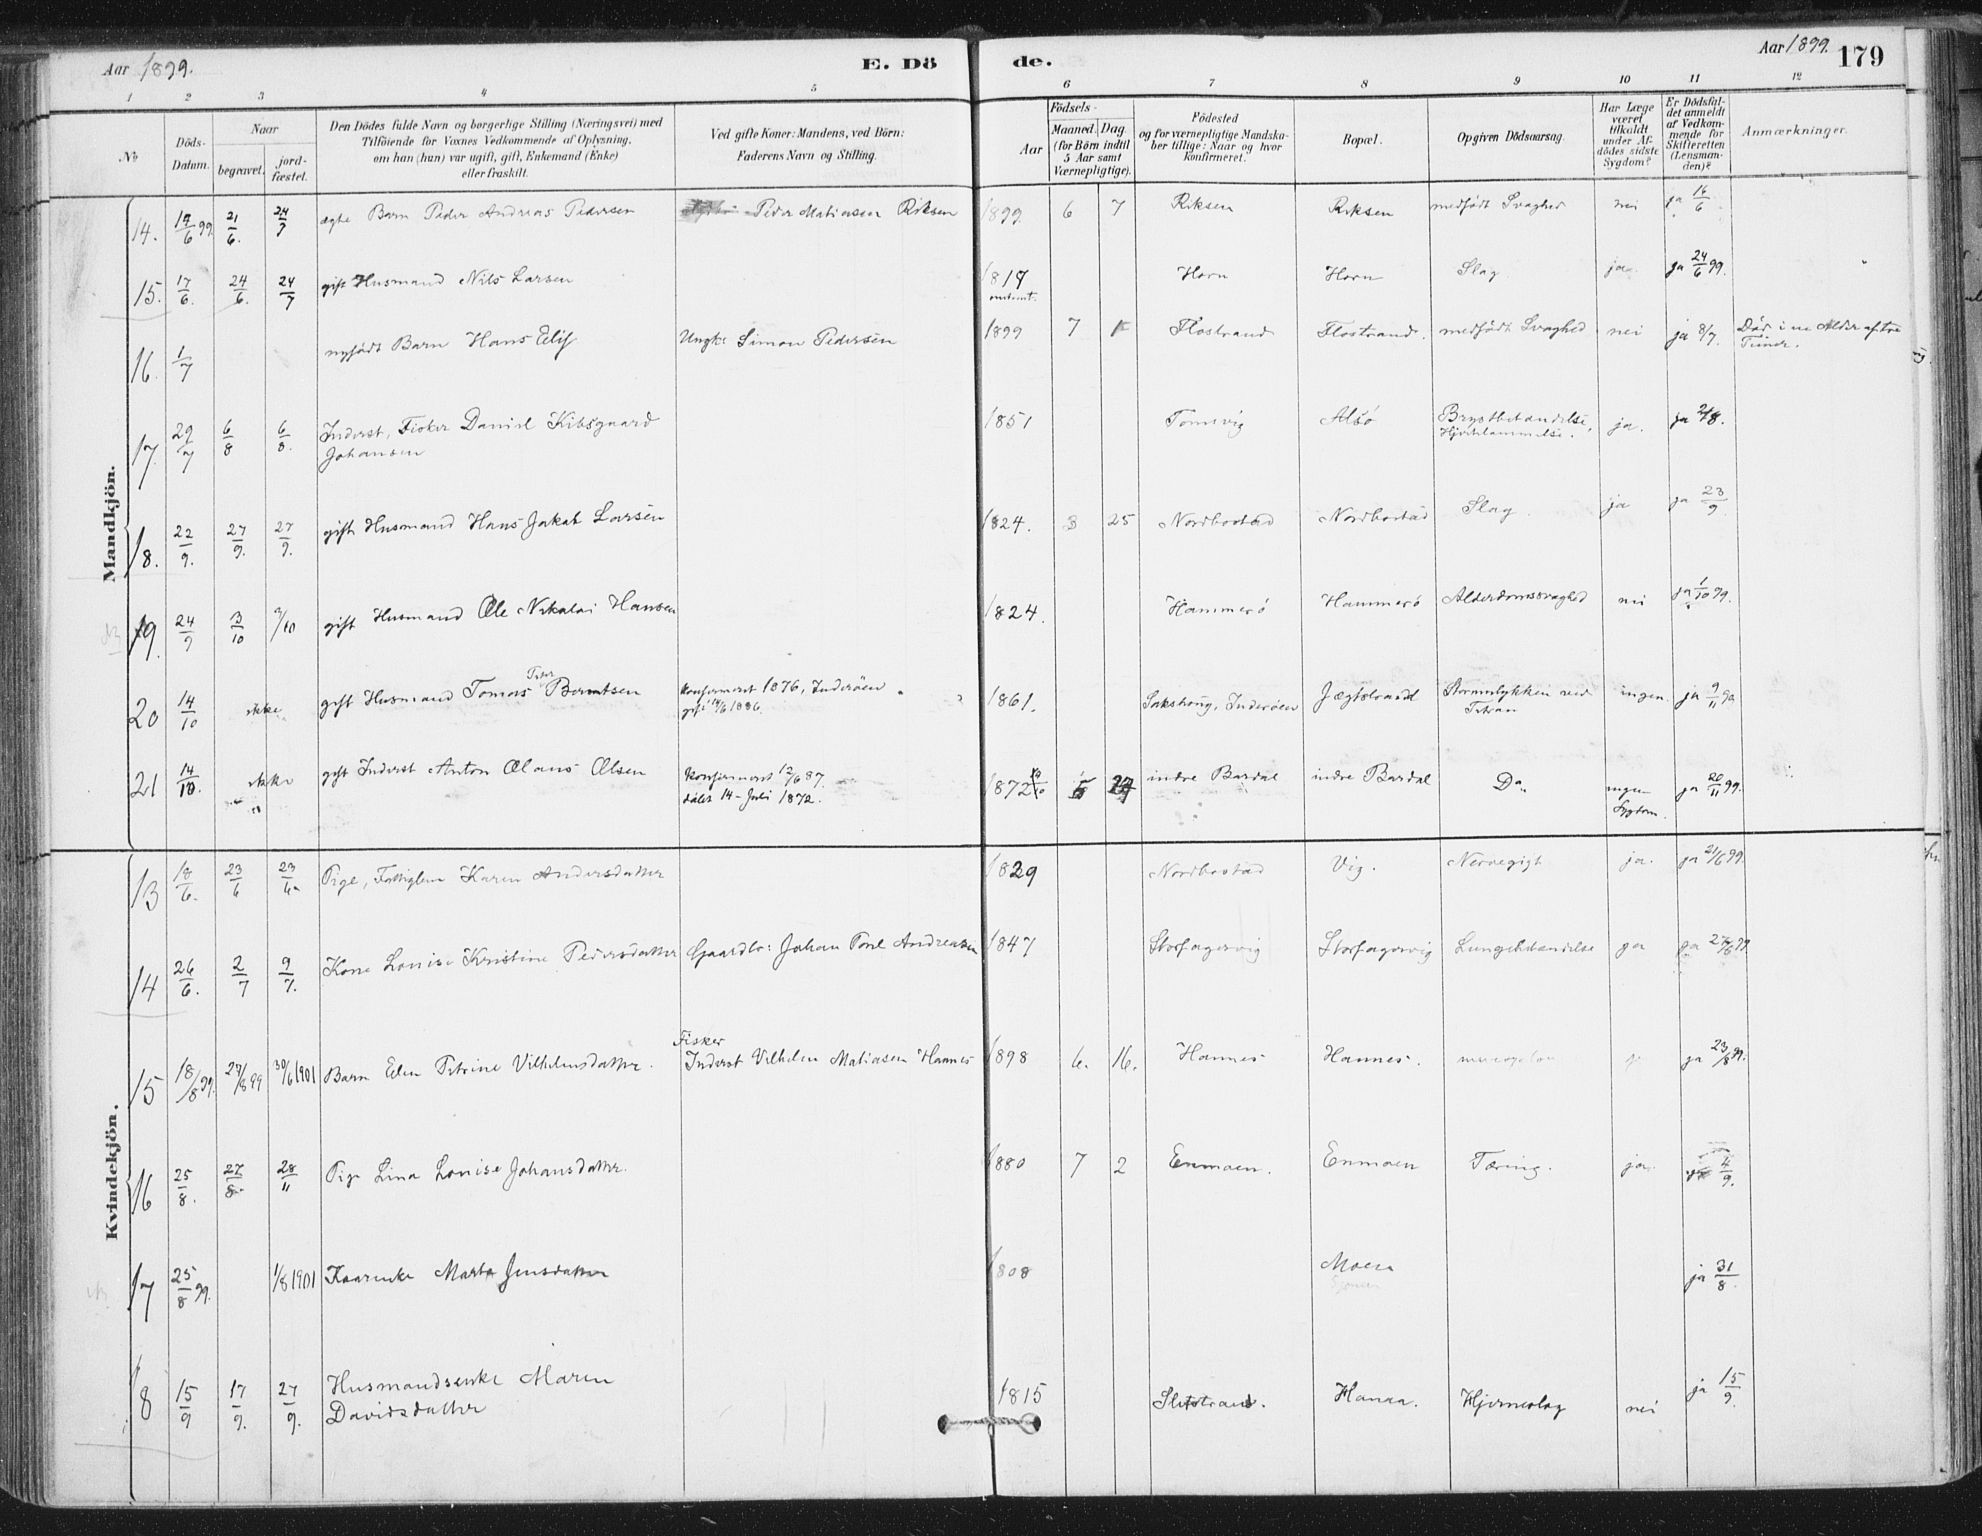 Aar 1899.
E. Dö
de.
Aar 1899.
179
1 2 3 4 5 6 7 8 9 10 11 12
No
Döds-Datum.
Naar
begravet.
jord-fæstet.
Den Dödes fulde Navn og borgerlige Stilling (Næringsvei) med
Tilföiende for Voxnes Vedkommende af Oplysning,
om han (hun) var ugift, gift, Enkemand (Enke)
eller fraskilt.
Ved gifte Koner: Mandens, ved Börn:
Faderens Navn og Stilling.
Födsels-
Aar
Maaned. Dag
(for Börn indtil
5 Aar samt
Værnepligtige).
Födested
og for værnepligtige Mandska-
ber tillige: Naar og hvor
konfirmeret.
Bopæl.
Opgiven Dödsaarsag.
Har Læge
været
tilkaldt
under Af-
dödes sidste
Sygdom?
Er Dödsfal-
det anmeldt
af Vedkom-
mende for
Skifteretten
(Lensman-
den)?
Anmærkninger.
Mandkjön.
14. 14/6 99 21/6. 24/7 ægte Barn Peder Andreas Pedersen Peder Matiasen Riksen 1899. 6 7 Riksen Riksen medfödt Svaghed nei ja 16/6
15. 17/6. 24/6. 24/7 gift Husmand Nils Larsen 1819 Horn Horn Slag ja. ja 24/6 99.
16. 1/7 nyfödt Barn Hans Elif Ungk: Simon Pedersen 1899 7 1 Flostrand Flostrand. medfödt Svaghed nei ja 8/7. Död i en Alder af tre
Timer.
17. 29/7 6/8 6/8. Inderst, Fisker Daniel Kibsgaard
Johansen 1851 Tomsvig Alsö Brystbetændelse,
Hjertelammelse. ja. ja 2/8.
18. 22/9. 27/9. 27/9. gift Husmand Hans Jakob Larsen 1824. 3 25 Nordbostad Nordbostad Slag. ja ja 23/9.
19. 24/9 3/10 9/10 gift Husmand Ole Nikolai Hansen 1824. Hammerö Hammerö Alderdomssvaghed nei ja 1/10 99.
20 14/10 ikke gift Husmand Tomas Peter Berntsen konfirmeret 1876, Inderöen
gift 14/6 1886. 1861. Sakshaug, Inderöen Jægtstrand Stormulykken ved
Titran ingen. ja 9/11 99
21 14/10. ikke gift Inderst Anton Olaus Olsen konfirmeret 12/6 87.
döbt 14 - Juli 1872. 1872 indre Bardal indre Bardal Do. ingen
Sygdom. ja 20/11 99.
Kvindekjön.
13 18/6. 23/6 23/6. Pige, Fattiglem Karen Andersdatter 1829 Nordbostad Vig. Nervegigt ja. ja 21/6 99.
14 26/6. 2/7 9/7. Kone Lovise Kristine Pedersdatter Gaardbr: Johan Povl Andreasen 1847 Storfagervig Storfagervig Lungebetændelse ja ja 27/6 99
15 18/8 99. 27/8 99 30/6 1901 Barn Elen Petrine Vilhelmsdatter. Fisker
Inderst Vilhelm Matiasen Hannes 1898 6. 16. Hannes Hannes. ja 23/8 99.
16 25/8. 27/8. 28/11 Pige Lina Lovise Johansdatter. 1880 7 2 Enmoen. Enmoen Tæring. ja. 4/9.
17 25/8 99. 1/8 1901 Kaarenke Marta Jensdatter 1808 Moen ja 31/8.
18 15/9 17/9. 27/9. Husmandsenke Maren
Davidsdatter 1815 Slitstrand. Hanaa. Hjerneslag nei ja 15/9.